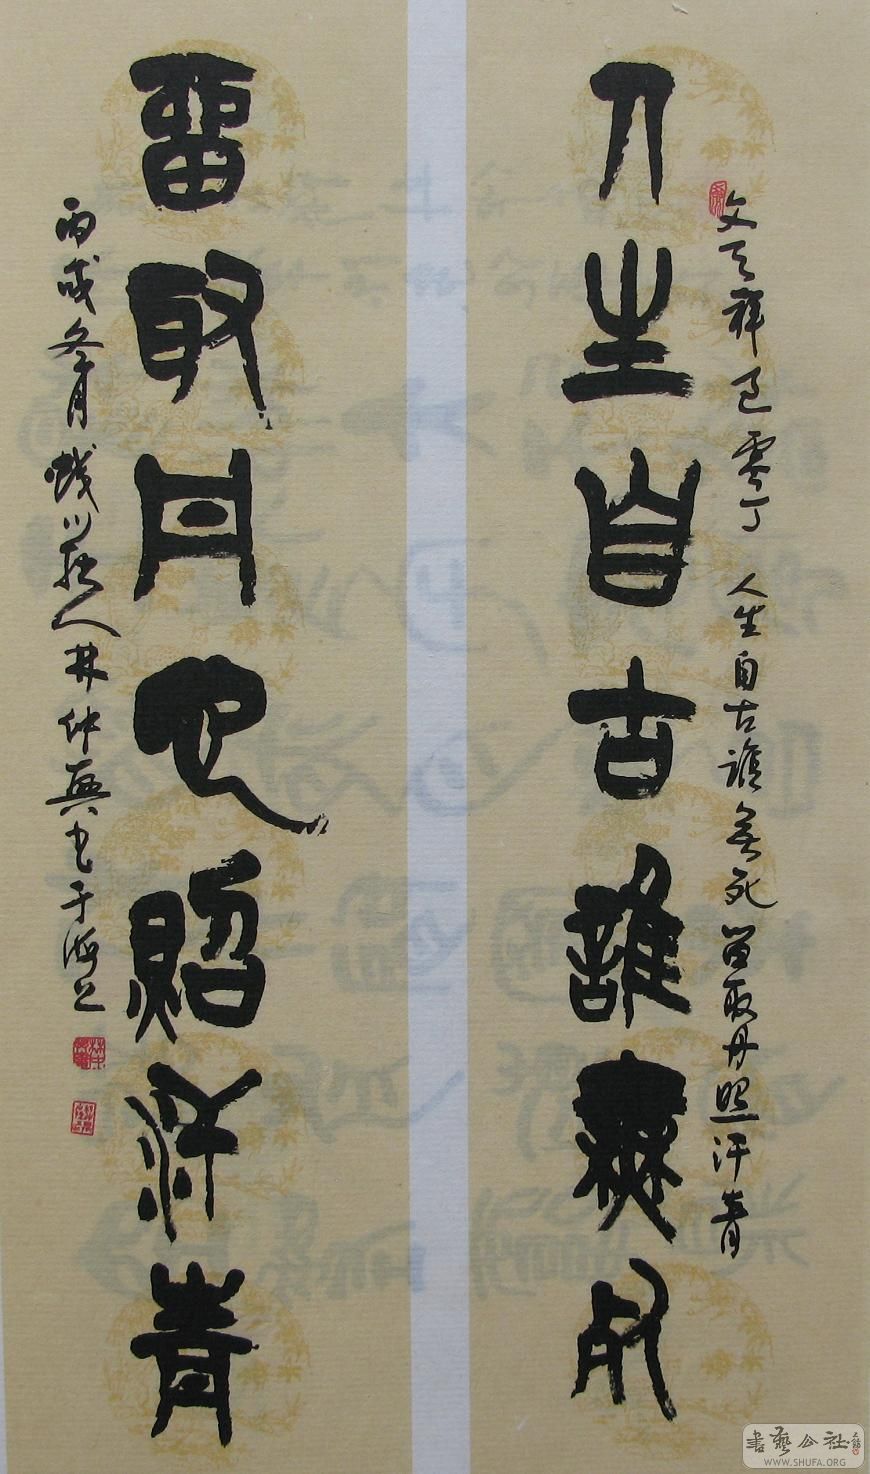 文天祥過零丁 人生自古誰無死 留取丹照汗青
人生自古誰無死
留取丹心照汗青
丙戌冬月 川 人林仲興書于海上
書藝公社
WWW.SHUFA.ORG